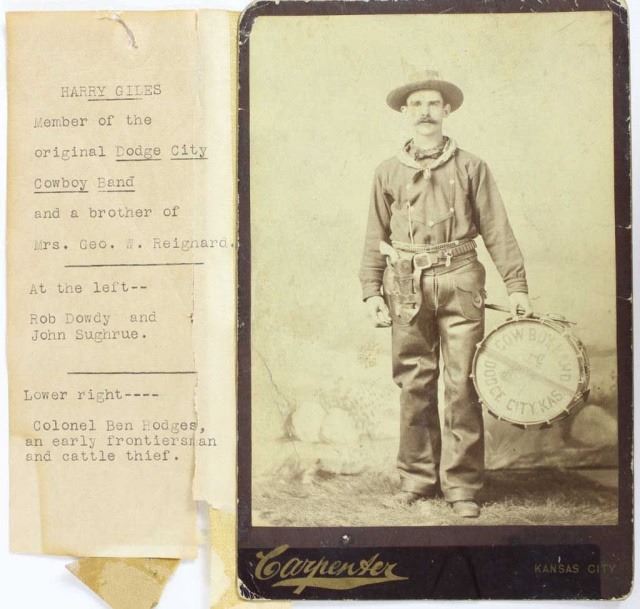 HARRY GILES
Member of the
original Dodge City
Cowboy Band
and a brother of
Mrs. Geo. W. Reighard.
At the left--
Rob Dowdy and
John Sughrue.
Lower right----
Colonel Ben Hodges,
an early frontiersman
and cattle thief.
COW BOY BAND
DODGE CITY, KAS.
Carpenter
KANSAS CITY